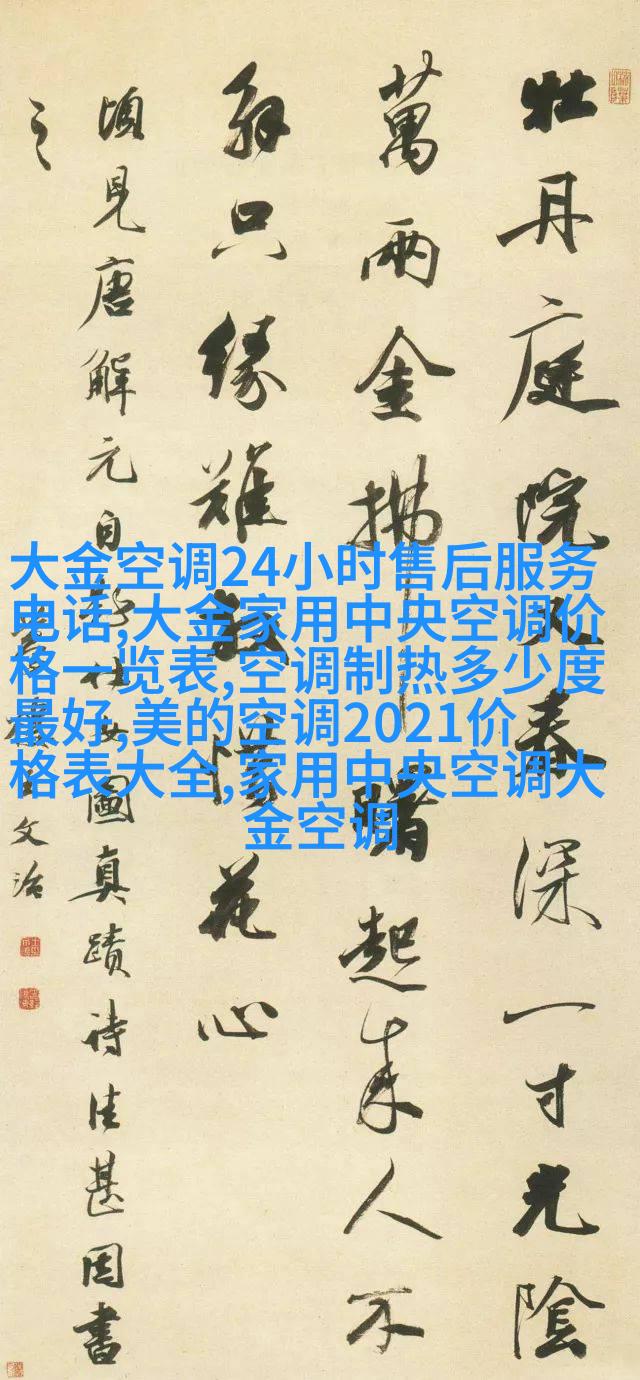 牡丹庭院又春深一寸光陰
萬兩金拂曙起來人不
解只緣難放惜花心
頃見唐解元自仕女圖真蹟詩佳甚因書
之
文治
大金空调24小时售后服务
电话,大金家用中央空调价
格一览表,空调制热多少度
最好,美的空调2021价
格表大全,家用中央空调大
金空调